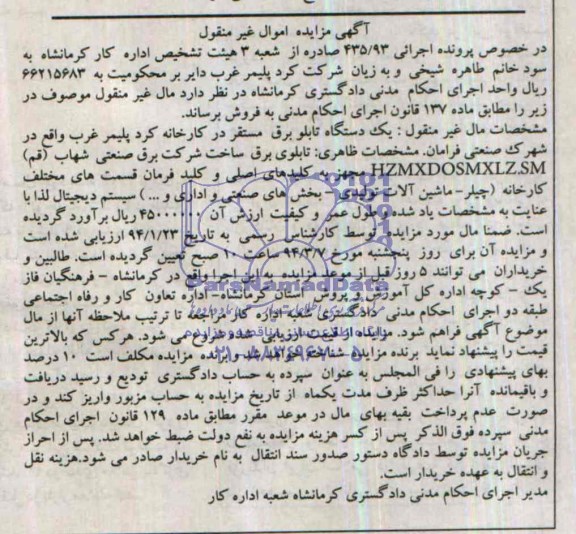 آگهی مزایده اموال غیر منقول
در خصوص پرونده اجرائی ۴۳۵/۹۳ صادره از شعبه ۳ هیئت تشخیص اداره کار کرمانشاه به
سود خانم طاهره شیخی و به زیان شرکت کرد پلیمر غرب دایر بر محکومیت به ۶۶۲۱۵۶۸۳
ریال واحد اجرای احکام مدنی دادگستری کرمانشاه در نظر دارد مال غیر منقول موصوف در
زیر را مطابق ماده ۱۳۷ قانون اجرای احکام مدنی به فروش برساند.
مشخصات مال غیر منقول : یک دستگاه تابلو برق مستقر در کارخانه کرد پلیمر غرب واقع در
شهرک صنعتی فرامان. مشخصات ظاهری: تابلوی برق ساخت شرکت برق صنعتی شهاب (قم)
HZMXDOSMXLZ.SM مجهز به کلیدهای اصلی و کلید فرمان قسمت های مختلف
کارخانه (چیلر- ماشین آلات تولیدی - بخش های صنعتی و اداری و ... ) سیستم دیجیتال لذا با
عنایت به مشخصات یاد شده و طول عمر و کیفیت ارزش آن ۴۵۰۰۰۰۰۰۰ ریال برآورد گردیده
است. ضمنا مال مورد مزایده توسط کارشناس رسمی به تاریخ ۹۴/۱/۲۳ ارزیابی شده است
و مزایده آن برای روز پنجشنبه مورخ ۹۴/۳/۷ ساعت ۱۰ صبح تعیین گردیده است. طالبین و
خریداران می توانند ۵ روز قبل از موعد مزایده به این اجرا واقع در کرمانشاه - فرهنگیان فاز
یک - کوچه اداره کل آموزش و پرورش استان کرمانشاه- اداره تعاون کار و رفاه اجتماعی
طبقه دو اجرای احکام مدنی دادگستری شعبه اداره کار مراجعه تا ترتیب ملاحظه آنها از مال
موضوع آگهی فراهم شود. مزایده از قیمت ارزیابی شده شروع می شود. هرکس که بالاترین
قیمت را پیشنهاد نماید برنده مزایده شناخته خواهد شد و برنده مزایده مکلف است ۱۰ درصد
بهای پیشنهادی را فی المجلس به عنوان سپرده به حساب دادگستری تودیع و رسید دریافت
و باقیمانده آنرا حداکثر ظرف مدت یکماه از تاریخ مزایده به حساب مزبور واریز کند و در
صورت عدم پرداخت بقیه بهای مال در موعد مقرر مطابق ماده ۱۲۹ قانون اجرای احکام
مدنی سپرده فوق الذکر پس از کسر هزینه مزایده به نفع دولت ضبط خواهد شد. پس از احراز
جریان مزایده توسط دادگاه دستور صدور سند انتقال به نام خریدار صادر می شود.هزینه نقل
و انتقال به عهده خریدار است.
مدیر اجرای احکام مدنی دادگستری کرمانشاه شعبه اداره کار
ParsNamadData